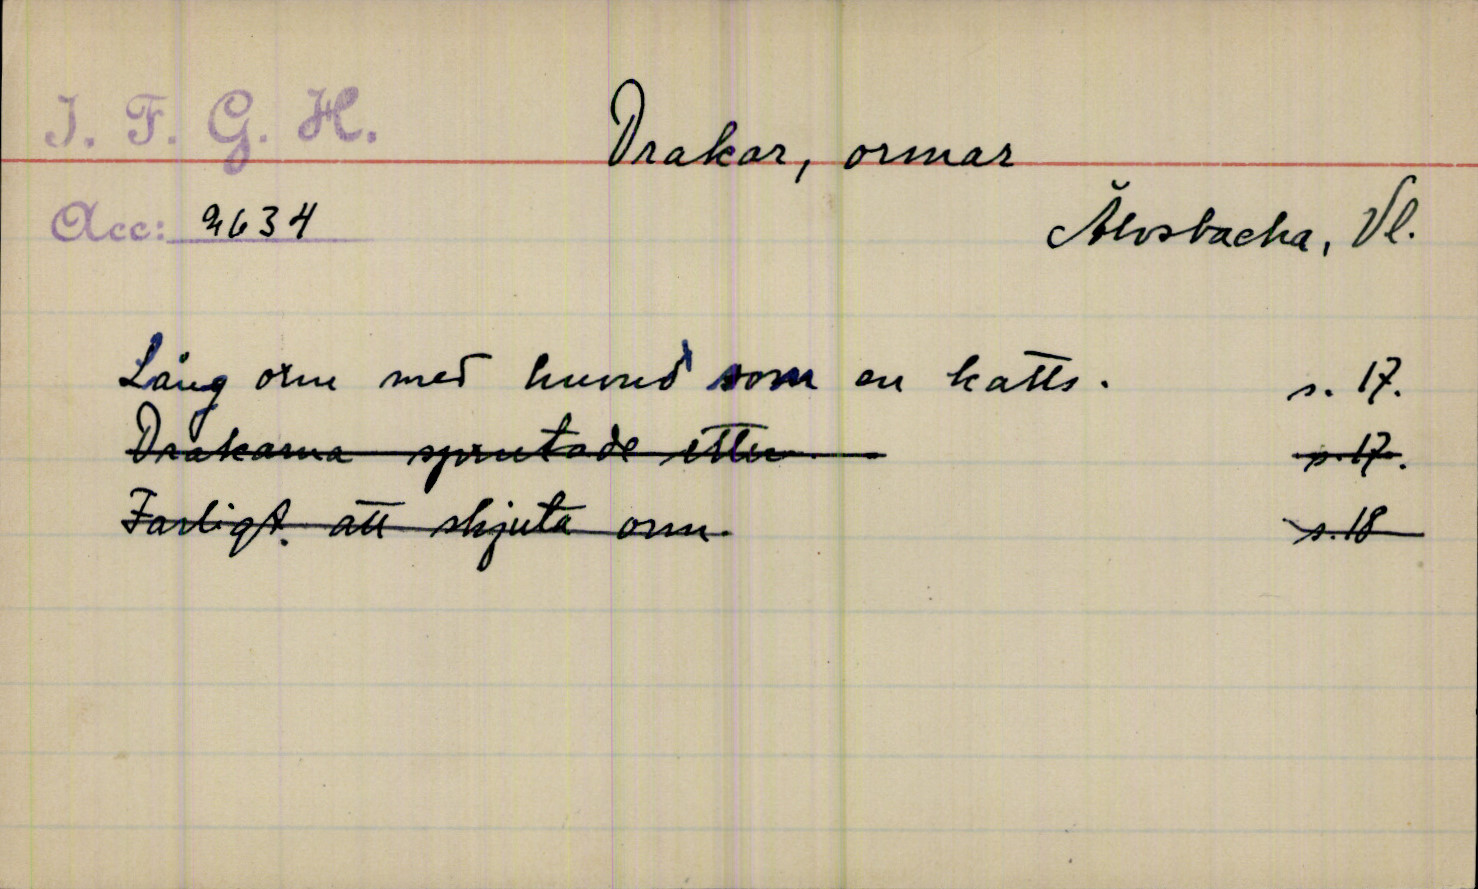 I. F. G. H.
Drakar, ormar
Acc: 2634
Älvsbacka, Vl.
Lång orm med huvud som en katts. s. 17.
Drakarna sprutade etter s. 17.
Farligt att skjuta orm. s. 18